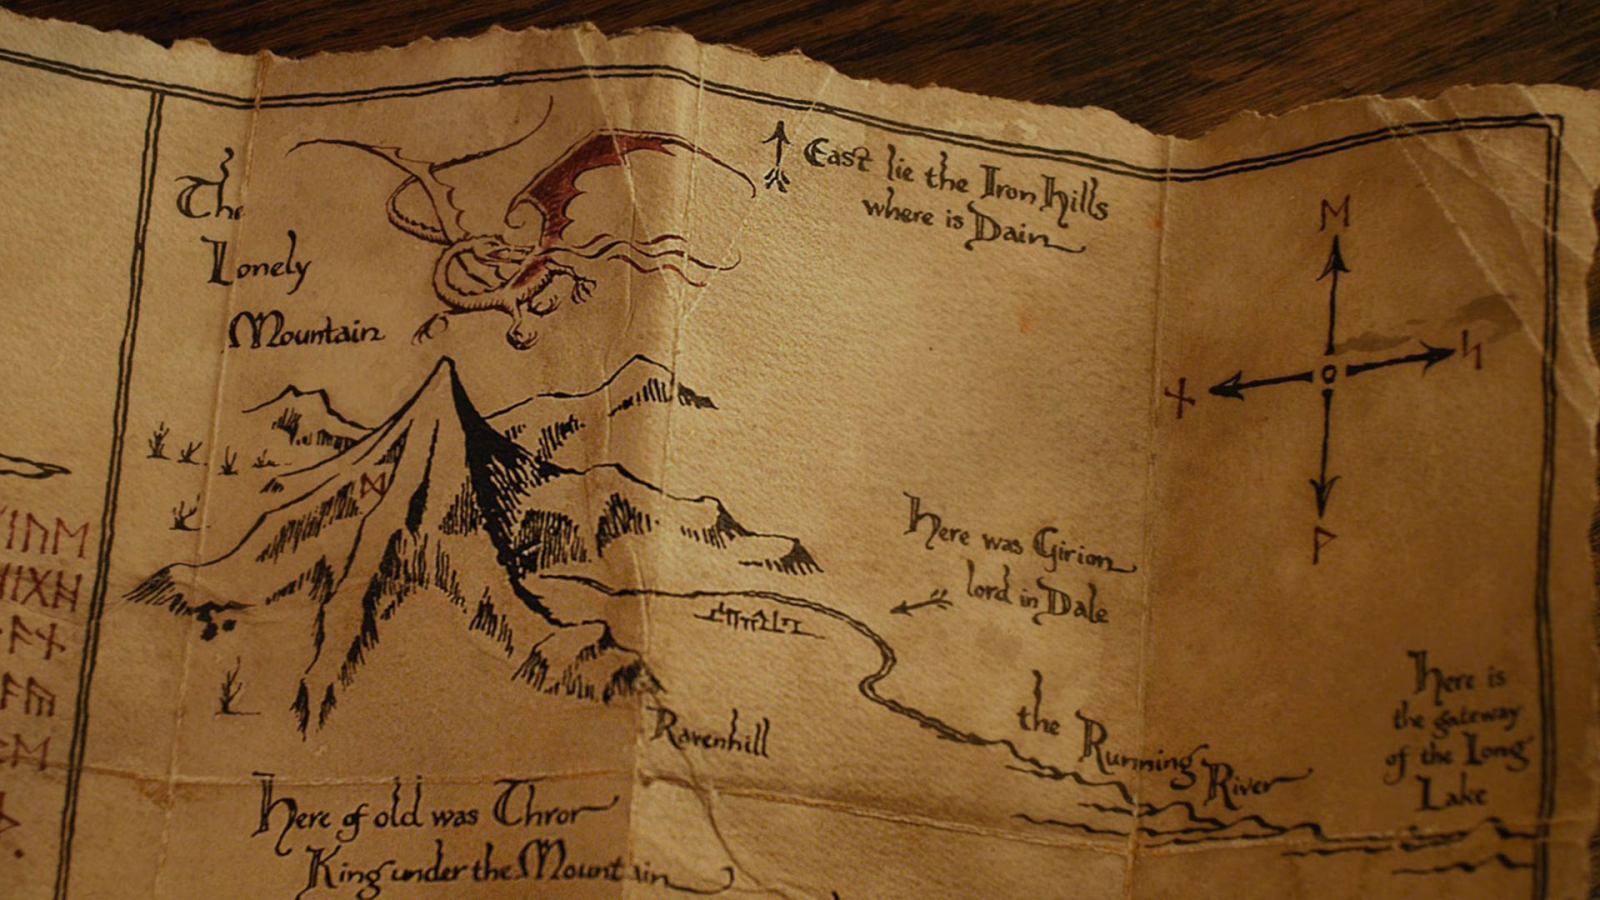 The
Lonely
Mountain
East lie the Iron Hills
where is Dain
ᛖ
ᚾ
ᛋ
ᚹ
ᛞ
Here was Girion
lord in Dale
the Running River
Ravenhill
Here is
the gateway
of the Long
Lake
Here of old was Thror
King under the Mountain